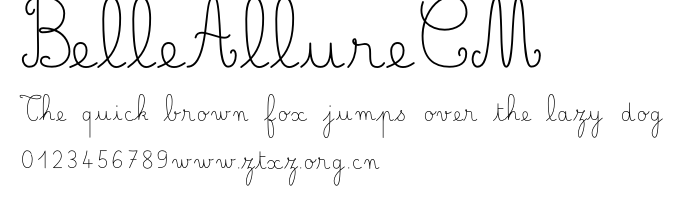 BelleAllureCM
The quick brown fox jumps over the lazy dog
0123456789www.ztxz.org.cn